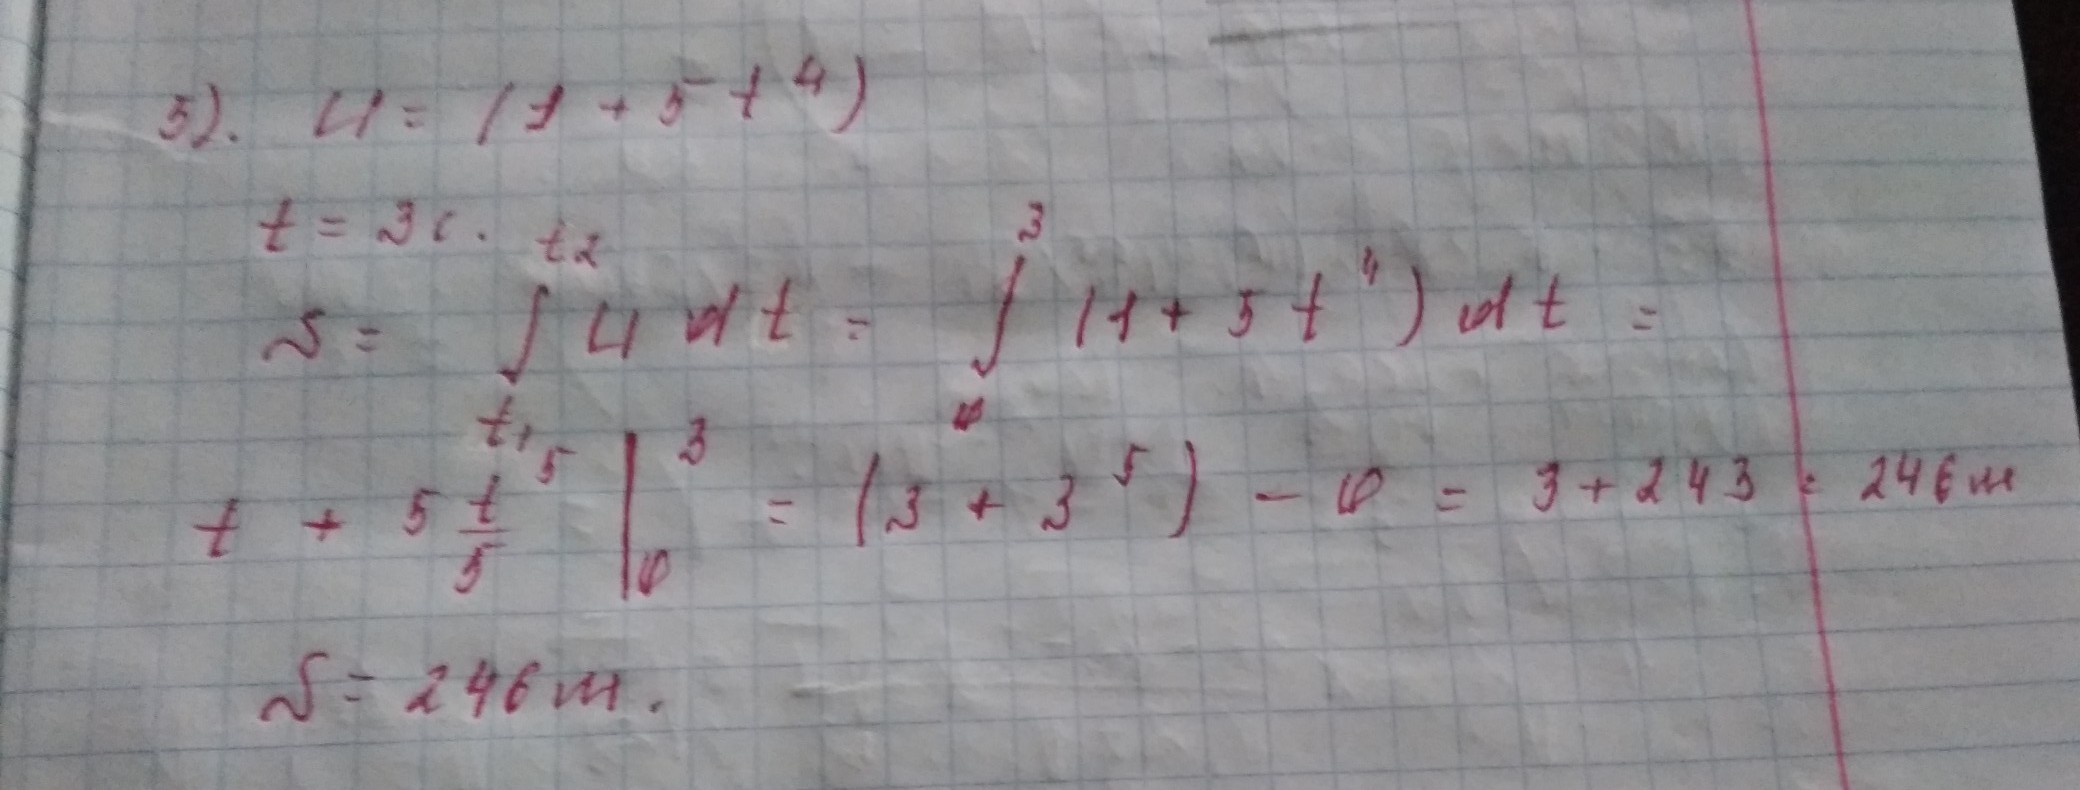 5). U = (1 + 5t⁴)
t = 3с.
S = ∫ₜ₁ᵗ² U dt = ∫₀³ (1 + 5t⁴) dt =
t + 5 t⁵/5 |₀³ = (3 + 3⁵) - 0 = 3 + 243 = 246 м
S = 246 м.